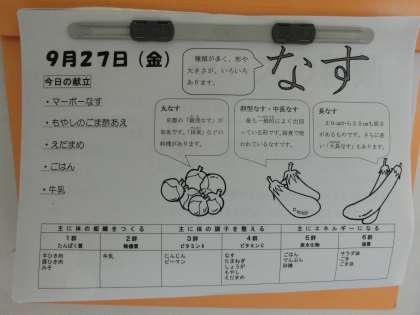 9月27日(金)
種類が多く、形や
大きさが、いろいろ
あります。
なす
今日の献立
・マーボーなす
・もやしのごま酢あえ
・えだまめ
・ごはん
・牛乳
丸なす
京都の「賀茂なす」が
有名です。「田楽」などの
料理があります。
卵型なす・中長なす
最も一般的によく出回
っている形です。給食で使
われているなすです。
長なす
もあります。
主に体の組織をつくる
主に体の調子を整える
主にエネルギーになる
1群
たんぱく質
2群
無機質
3群
ビタミンA
4群
ビタミンC
5群
炭水化物
6群
脂質
牛ひき肉
豚ひき肉
みそ
牛乳
にんじん
ピーマン
なす
たまねぎ
しょうが
もやし
えだまめ
ごはん
でんぷん
砂糖
サラダ油
ごま
ごま油